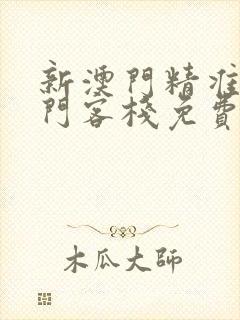 新澳門精准
門客棧免費
木瓜大師